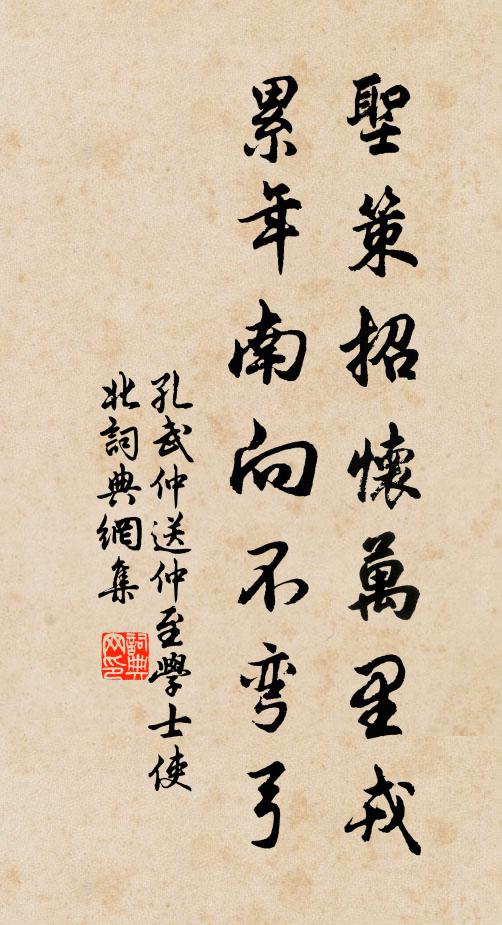 聖策招懷萬里戎
累年南向不弯弓
孔武仲送仲至學士使
北詞典網集
詞典
网印